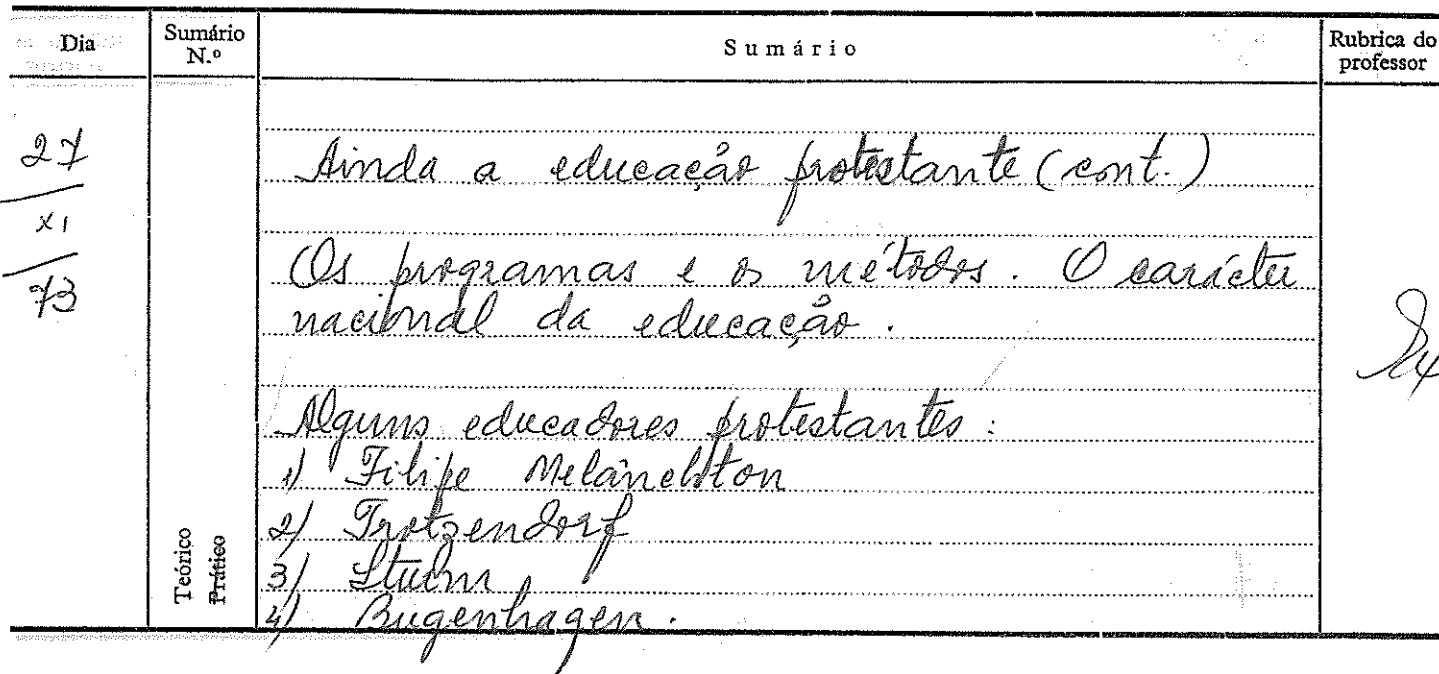 Dia
Sumário N.º
Sumário
Rubrica do professor
27
XI
73
Ainda a educação protestante (cont.)
Os programas e os métodos. O carácter
nacional da educação.
Alguns educadores protestantes:
1) Filipe Melânchton
2) Trotzendorf
3) Sturm
4) Bugenhagen.
Teórico
Prático